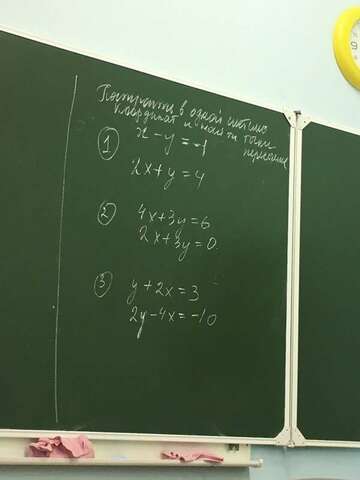 Построить в одной системе
координат и найти точки
пересечения
① x - y = -1
2x + y = 4
② 4x + 3y = 6
2x + 3y = 0
③ y + 2x = 3
2y - 4x = -10